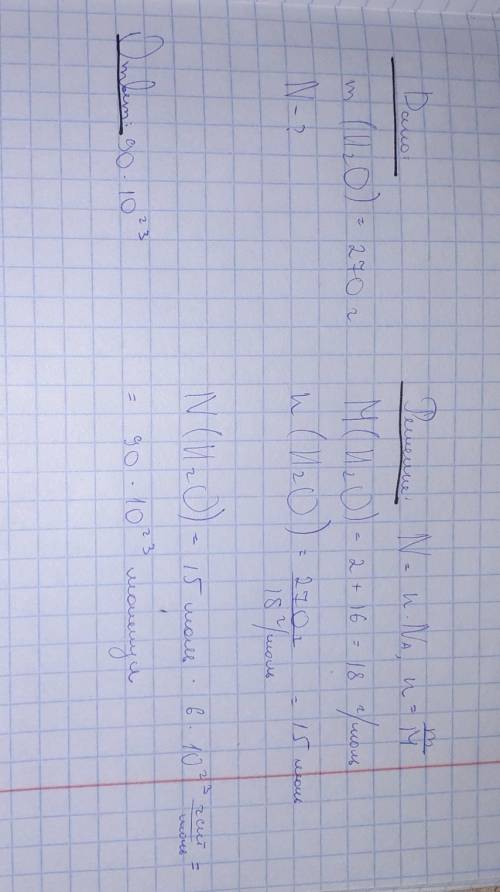 Дано:
m (H₂O) = 270 г
N – ?
Решение: N = n · Nₐ, n = m/M
M(H₂O) = 2 + 16 = 18 г/моль
n (H₂O) = 270 г / 18 г/моль = 15 моль
N (H₂O) = 15 моль · 6 · 10²³ =
= 90 · 10²³ молекул
Ответ: 90 · 10²³